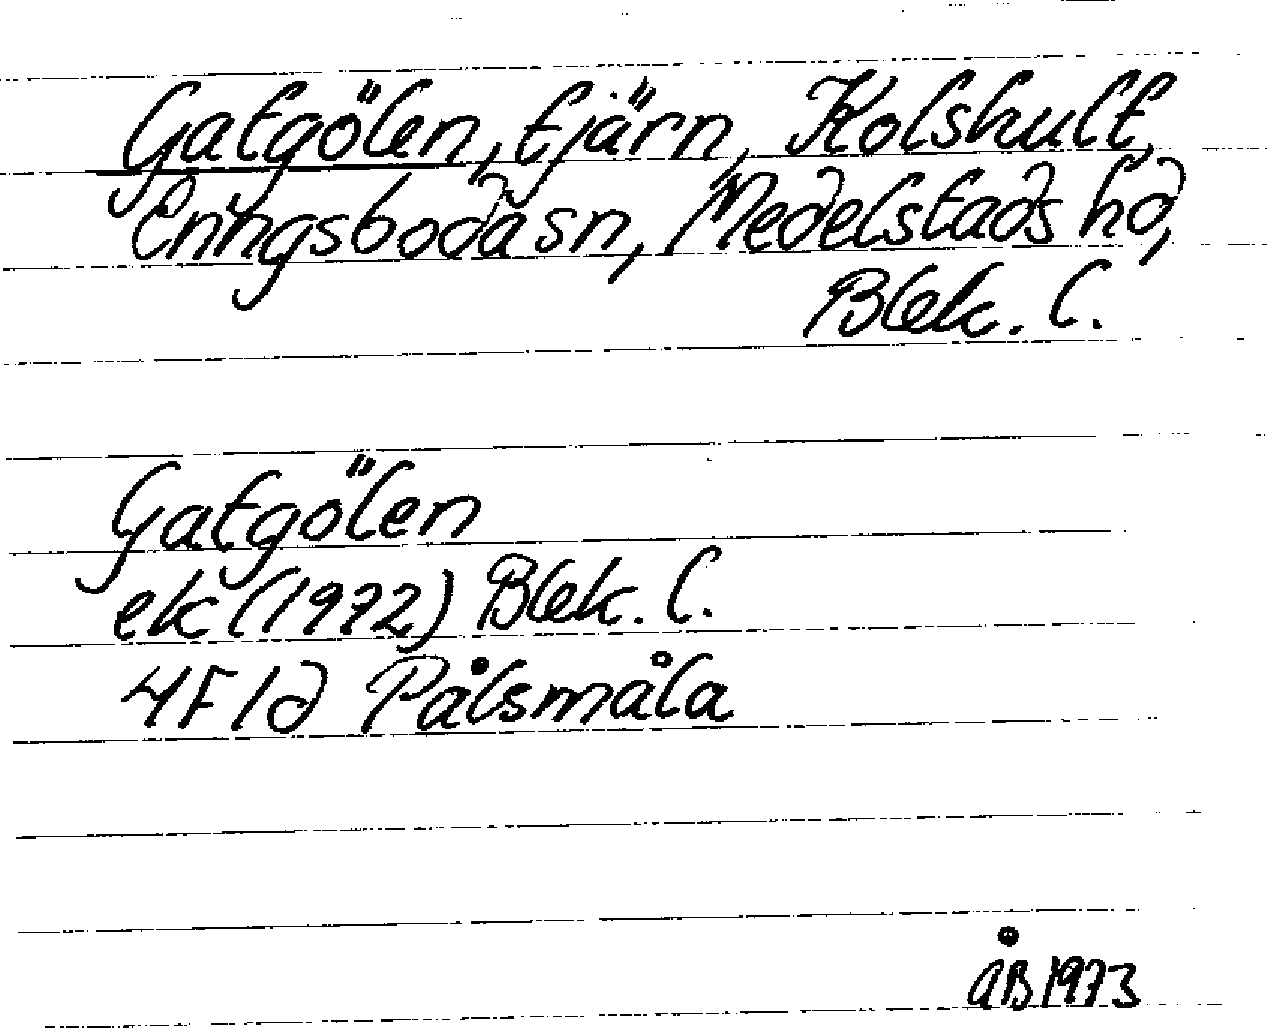 Gatgölen, tjärn, Kolshult,
Eringsboda sn, Medelstads hd,
Blek. l.
Gatgölen
ek (1972) Blek. l.
4F 1d Pålsmåla
ÅB 1973